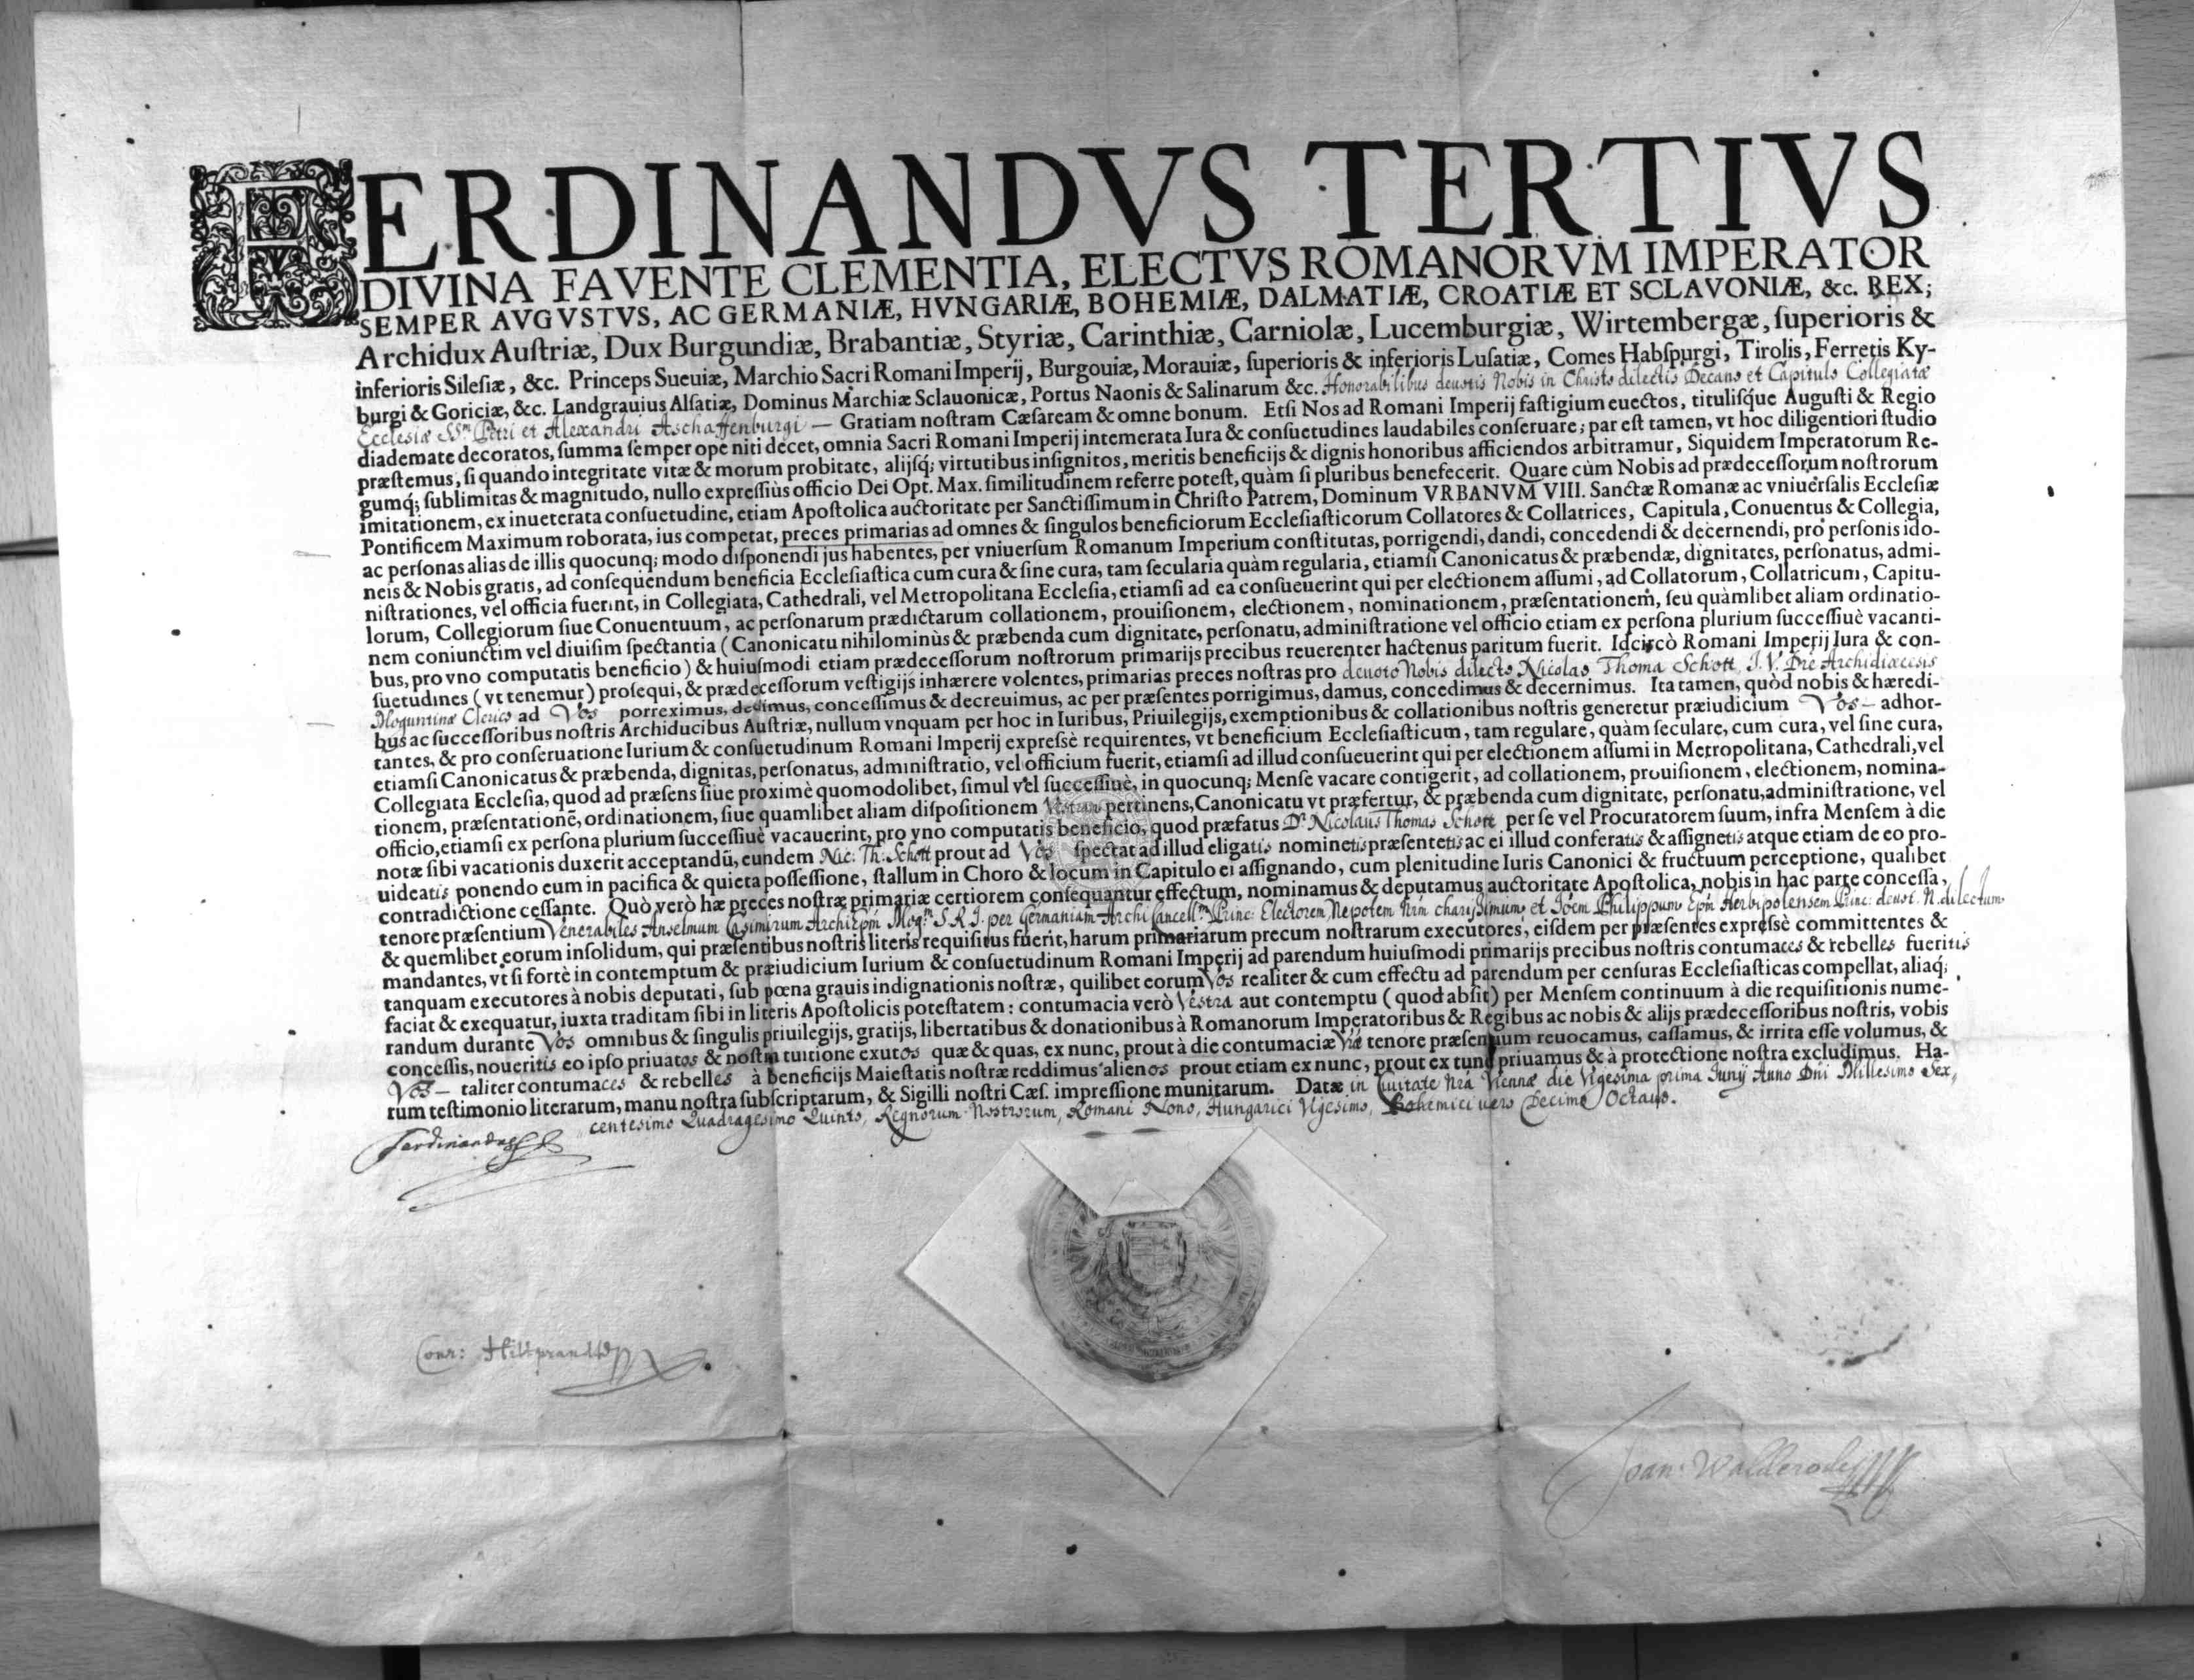 FERDINANDVS TERTIVS
DIVINA FAVENTE CLEMENTIA, ELECTVS ROMANORVM IMPERATOR
SEMPER AVGVSTVS, AC GERMANIÆ, HVNGARIÆ, BOHEMIÆ, DALMATIÆ, CROATIÆ ET SCLAVONIÆ, &c. REX;
Archidux Auſtriæ, Dux Burgundiæ, Brabantiæ, Styriæ, Carinthiæ, Carniolæ, Lucemburgiæ, Wirtembergæ, ſuperioris &
inferioris Sileſiæ, &c. Princeps Sueuiæ, Marchio Sacri Romani Imperij, Burgouiæ, Morauiæ, ſuperioris & inferioris Luſatiæ, Comes Habſpurgi, Tirolis, Ferretis Ky-
burgi & Goriciæ, &c. Landgrauius Alſatiæ, Dominus Marchiæ Sclauonicæ, Portus Naonis & Salinarum &c. Honorabilibus deuotis Nobis in Christo dilectis Decano et Capitulo Collegiatæ
Ecclesiæ SSm Petri et Alexandri Aschaffenburgi — Gratiam noſtram Cæſaream & omne bonum. Etſi Nos ad Romani Imperij faſtigium euectos, tituliſque Auguſti & Regio
diademate decoratos, ſumma ſemper ope niti decet, omnia Sacri Romani Imperij intemerata Iura & conſuetudines laudabiles conſeruare; par eſt tamen, vt hoc diligentiori ſtudio
præſtemus, ſi quando integritate vitæ & morum probitate, alijſq; virtutibus inſignitos, meritis beneficijs & dignis honoribus afficiendos arbitramur, Siquidem Imperatorum Re-
gumq; ſublimitas & magnitudo, nullo expreſſiùs officio Dei Opt. Max. ſimilitudinem referre poteſt, quàm ſi pluribus benefecerit. Quare cùm Nobis ad prædeceſſorum noſtrorum
imitationem, ex inueterata conſuetudine, etiam Apoſtolica auctoritate per Sanctiſſimum in Chriſto Patrem, Dominum VRBANVM VIII. Sanctæ Romanæ ac vniuerſalis Eccleſiæ
Pontificem Maximum roborata, ius competat, preces primarias ad omnes & ſingulos beneficiorum Eccleſiaſticorum Collatores & Collatrices, Capitula, Conuentus & Collegia,
ac perſonas alias de illis quocunq; modo diſponendi jus habentes, per vniuerſum Romanum Imperium conſtitutas, porrigendi, dandi, concedendi & decernendi, pro perſonis ido-
neis & Nobis gratis, ad conſequendum beneficia Eccleſiaſtica cum cura & ſine cura, tam ſecularia quàm regularia, etiamſi Canonicatus & præbendæ, dignitates, perſonatus, admi-
niſtrationes, vel officia fuerint, in Collegiata, Cathedrali, vel Metropolitana Eccleſia, etiamſi ad ea conſueuerint qui per electionem aſſumi, ad Collatorum, Collatricum, Capitu-
lorum, Collegiorum ſiue Conuentuum, ac perſonarum prædictarum collationem, prouiſionem, electionem, nominationem, præſentationem, ſeu quàmlibet aliam ordinatio-
nem coniunctim vel diuiſim ſpectantia (Canonicatu nihilominùs & præbenda cum dignitate, perſonatu, adminiſtratione vel officio etiam ex perſona plurium ſucceſſiuè vacanti-
bus, pro vno computatis beneficio) & huiuſmodi etiam prædeceſſorum noſtrorum primarijs precibus reuerenter hactenus paritum fuerit. Idcircò Romani Imperij Iura & con-
ſuetudines (vt tenemur) proſequi, & prædeceſſorum veſtigijs inhærere volentes, primarias preces noſtras pro deuoto Nobis dilecto Nicolao Thoma Schott, I.V. Dre Archidiœcesis
Moguntinæ Clerico ad Vos porreximus, dedimus, conceſſimus & decreuimus, ac per præſentes porrigimus, damus, concedimus & decernimus. Ita tamen, quòd nobis & hæredi-
bus ac ſucceſſoribus noſtris Archiducibus Auſtriæ, nullum vnquam per hoc in Iuribus, Priuilegijs, exemptionibus & collationibus noſtris generetur præiudicium Vos — adhor-
tantes, & pro conſeruatione Iurium & conſuetudinum Romani Imperij expreſsè requirentes, vt beneficium Eccleſiaſticum, tam regulare, quàm ſeculare, cum cura, vel ſine cura,
etiamſi Canonicatus & præbenda, dignitas, perſonatus, adminiſtratio, vel officium fuerit, etiamſi ad illud conſueuerint qui per electionem aſſumi in Metropolitana, Cathedrali, vel
Collegiata Eccleſia, quod ad præſens ſiue proximè quomodolibet, ſimul vel ſucceſſiuè, in quocunq; Menſe vacare contigerit, ad collationem, prouiſionem, electionem, nomina-
tionem, præſentationē, ordinationem, ſiue quamlibet aliam diſpoſitionem Vestram pertinens, Canonicatu vt præfertur, & præbenda cum dignitate, perſonatu, adminiſtratione, vel
officio, etiamſi ex perſona plurium ſucceſſiuè vacauerint, pro vno computatis beneficio, quod præfatus Dr. Nicolaus Thomas Schott per ſe vel Procuratorem ſuum, infra Menſem à die
notæ ſibi vacationis duxerit acceptandū, eundem Nic: Th: Schott prout ad Vos ſpectat ad illud eligatis nominetis præſentetis ac ei illud conferatis & aſſignetis atque etiam de eo pro-
uideatis ponendo eum in pacifica & quieta poſſeſſione, ſtallum in Choro & locum in Capitulo ei aſſignando, cum plenitudine Iuris Canonici & fructuum perceptione, qualibet
contradictione ceſſante. Quò verò hæ preces noſtræ primariæ certiorem conſequantur effectum, nominamus & deputamus auctoritate Apoſtolica, nobis in hac parte conceſſa,
tenore præſentium Venerabiles Anselmum Casimirum ArchiEpm Mogm S.R.I. per Germaniam Archi Cancellm Princ: Electorem Nepotem Nrm charissimum, et Joem Philippum Epm Herbipolensem Princ: deuot. N. dilectum
& quemlibet eorum inſolidum, qui præſentibus noſtris literis requiſitus fuerit, harum primariarum precum noſtrarum executores, eiſdem per præſentes expreſsè committentes &
mandantes, vt ſi fortè in contemptum & præiudicium Iurium & conſuetudinum Romani Imperij ad parendum huiuſmodi primarijs precibus noſtris contumaces & rebelles fueritis
tanquam executores à nobis deputati, ſub pœna grauis indignationis noſtræ, quilibet eorum Vos realiter & cum effectu ad parendum per cenſuras Eccleſiaſticas compellat, aliaq;
faciat & exequatur, iuxta traditam ſibi in literis Apoſtolicis poteſtatem: contumacia verò Vestra aut contemptu (quod abſit) per Menſem continuum à die requiſitionis nume-
randum durante Vos omnibus & ſingulis priuilegijs, gratijs, libertatibus & donationibus à Romanorum Imperatoribus & Regibus ac nobis & alijs prædeceſſoribus noſtris, vobis
conceſſis, noueritis eo ipſo priuatos & noſtra tuitione exutos quæ & quas, ex nunc, prout à die contumaciæ Vræ tenore præſentium reuocamus, caſſamus, & irrita eſſe volumus, &
Vos — taliter contumaces & rebelles à beneficijs Maieſtatis noſtræ reddimus alienos prout etiam ex nunc, prout ex tunc priuamus & à protectione noſtra excludimus. Ha-
rum teſtimonio literarum, manu noſtra ſubſcriptarum, & Sigilli noſtri Cæſ. impreſſione munitarum. Datæ in Ciuitate Nra Viennæ die Vigesima prima Junij Anno Dni Millesimo Sex,
centesimo Quadragesimo Quinto, Regnorum Nostrorum, Romani Nono, Hungarici Vigesimo, Bohemici vero Decimo Octauo.
Ferdinandus
Conr: Hiltprandt
Joan: Walderode